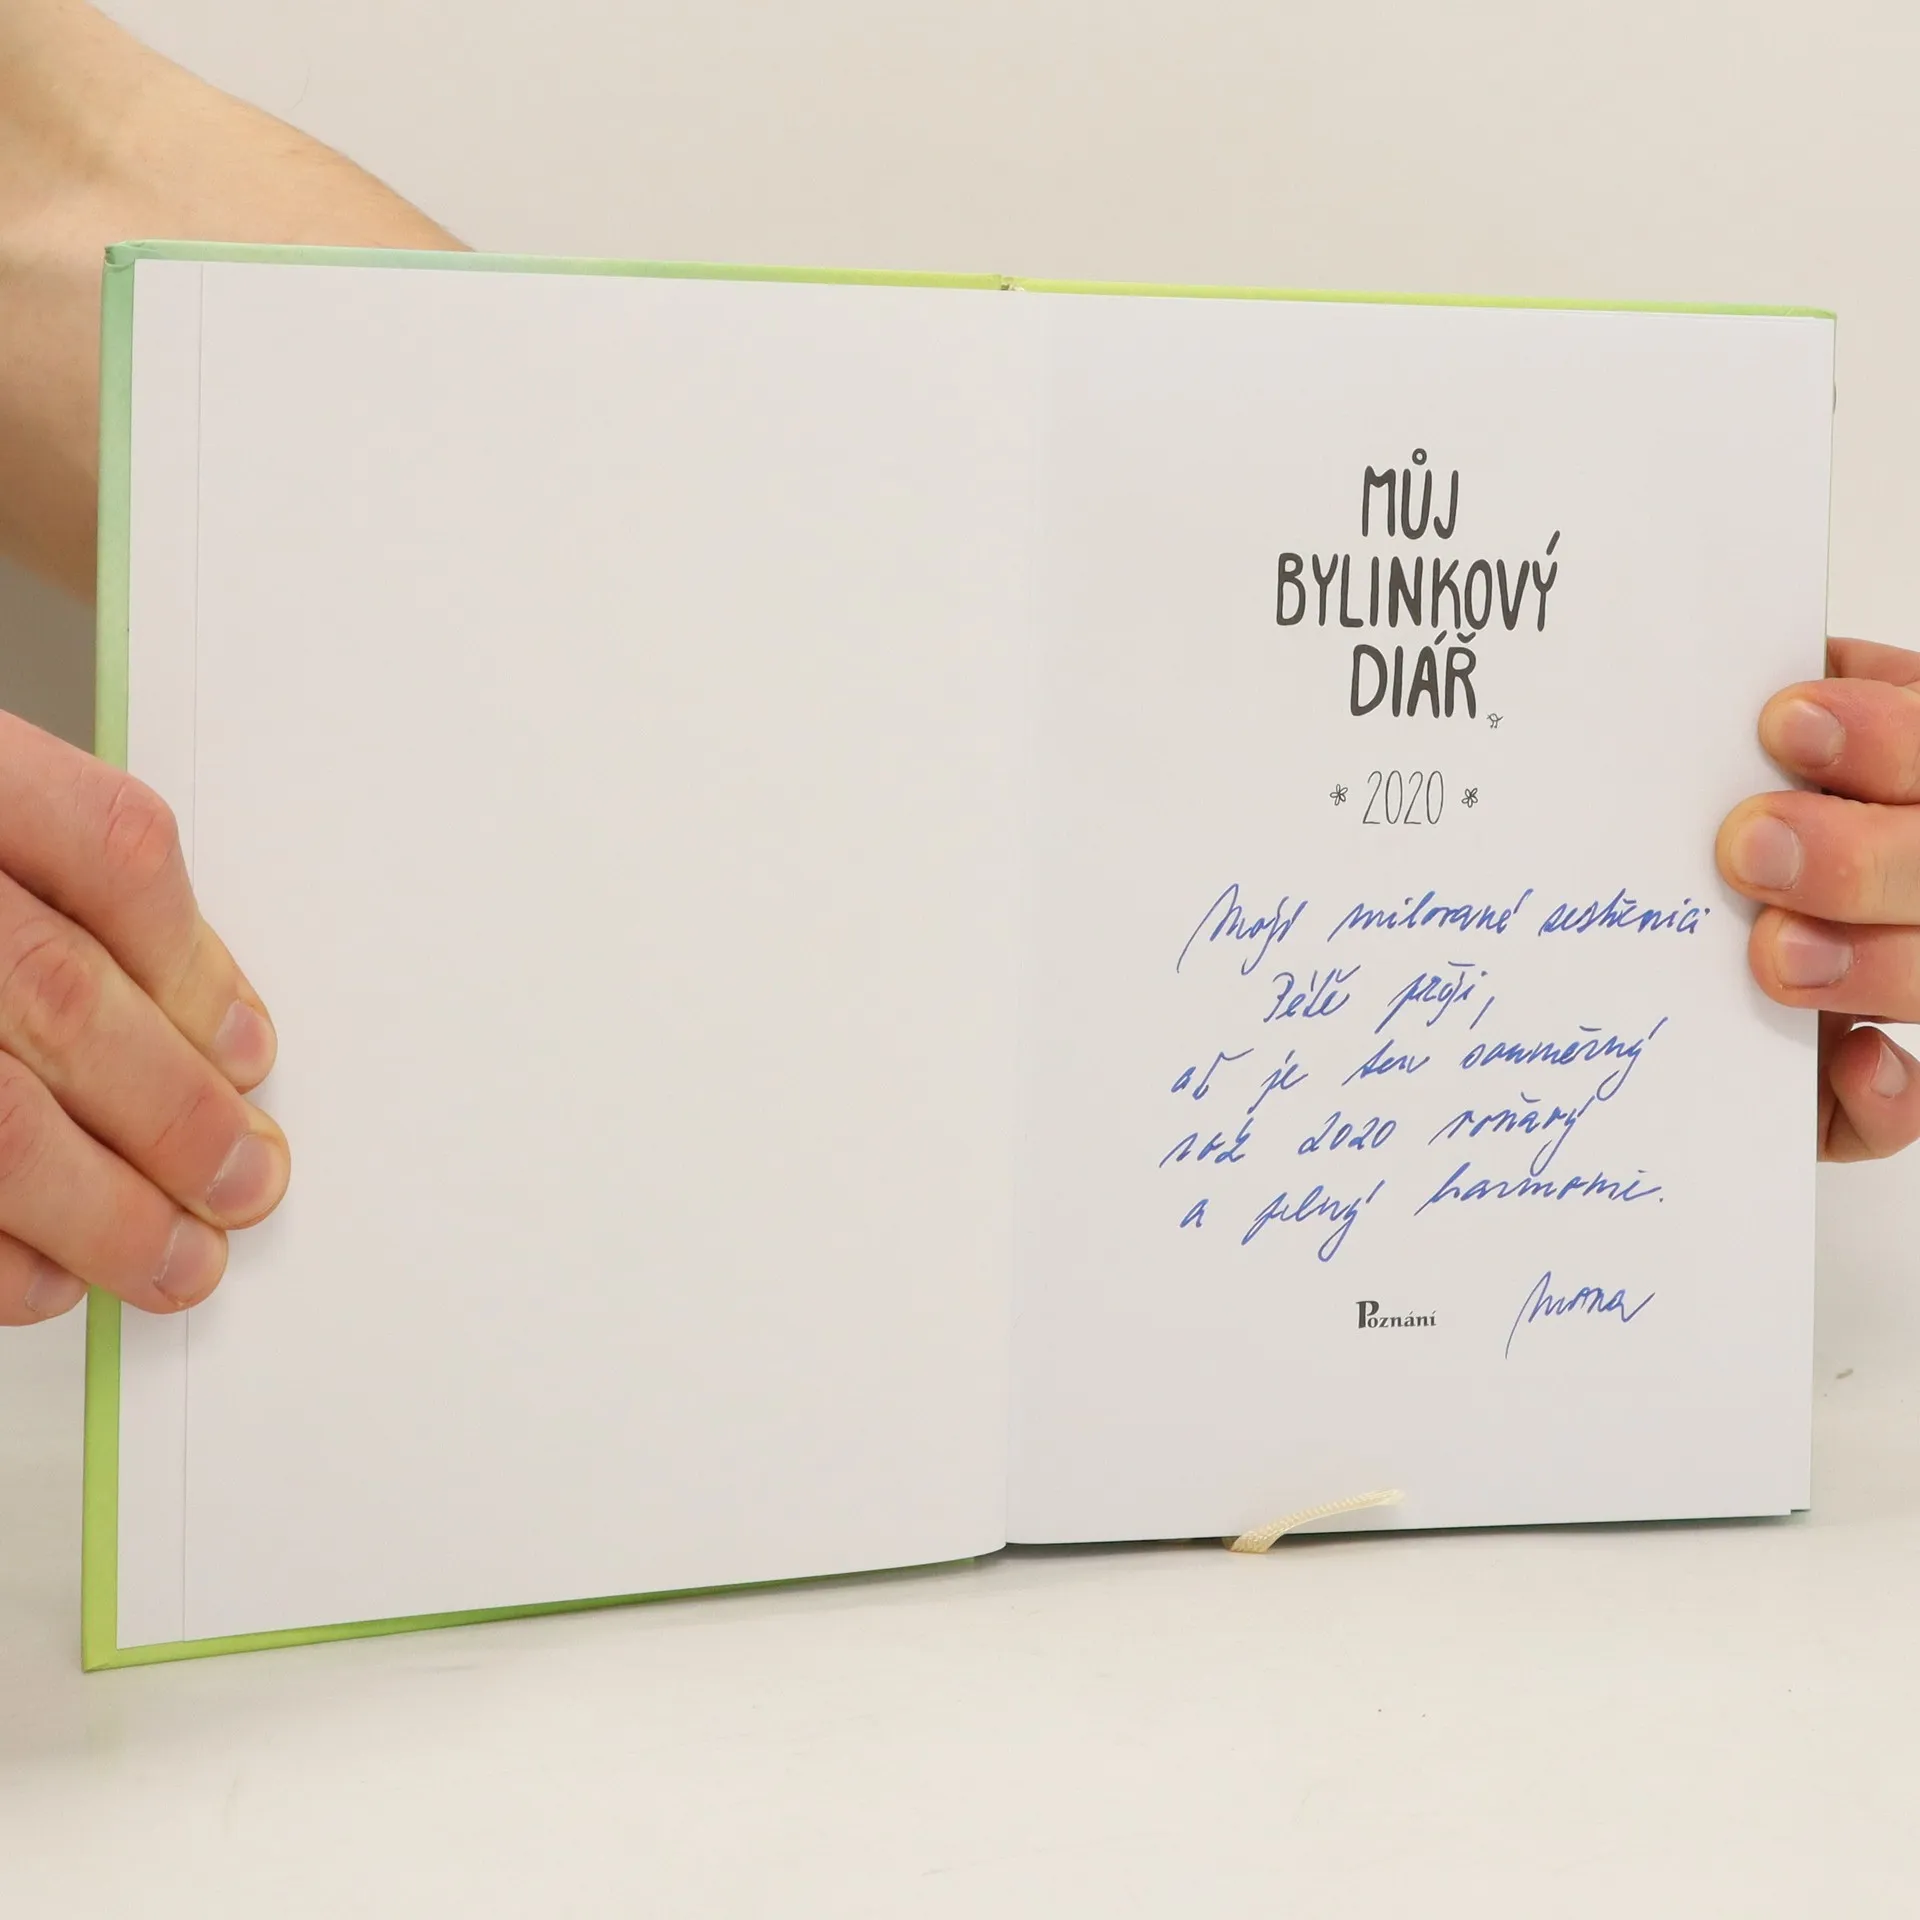 MŮJ
BYLINKOVÝ
DIÁŘ
2020
milované sestřenici
Pétě přeji,
ať je ten souměrný
rok 2020 voňavý
a plný harmonie.
Poznání